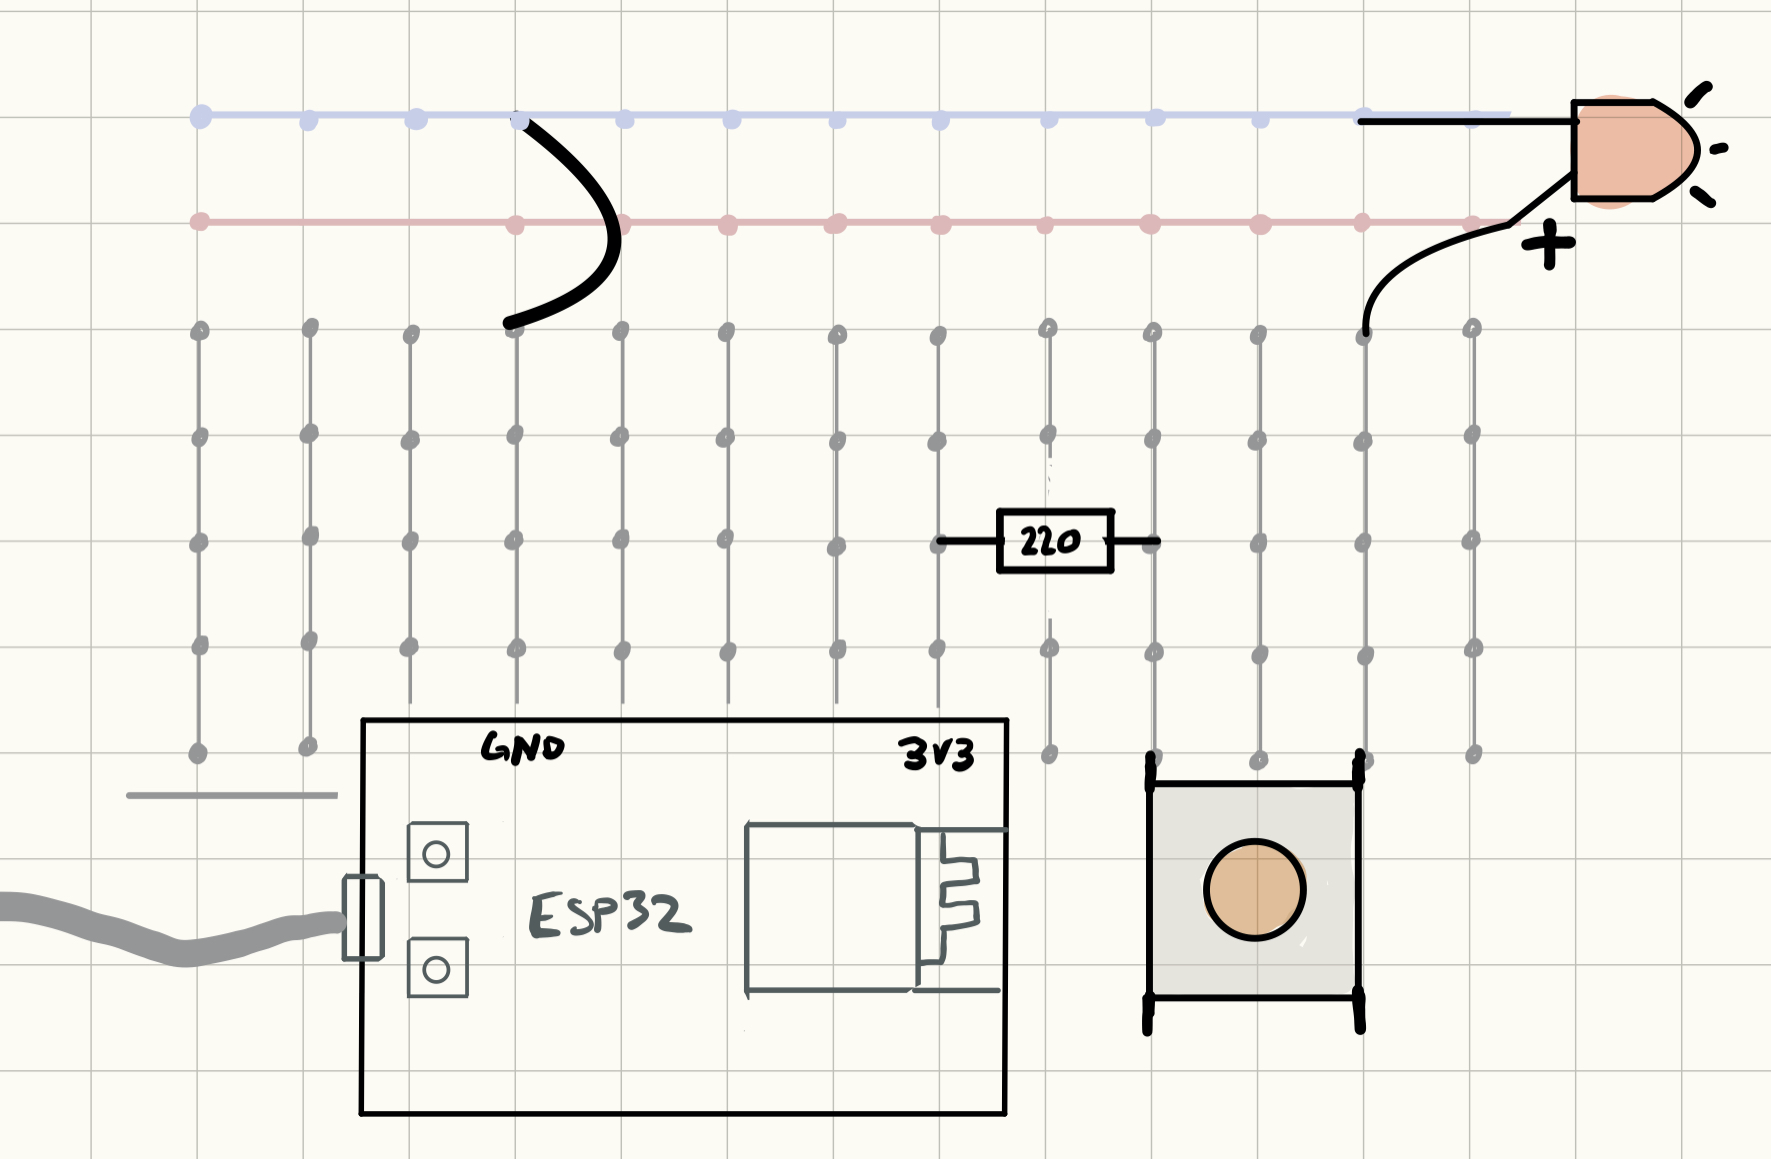 +
220
GND 3V3
ESP32